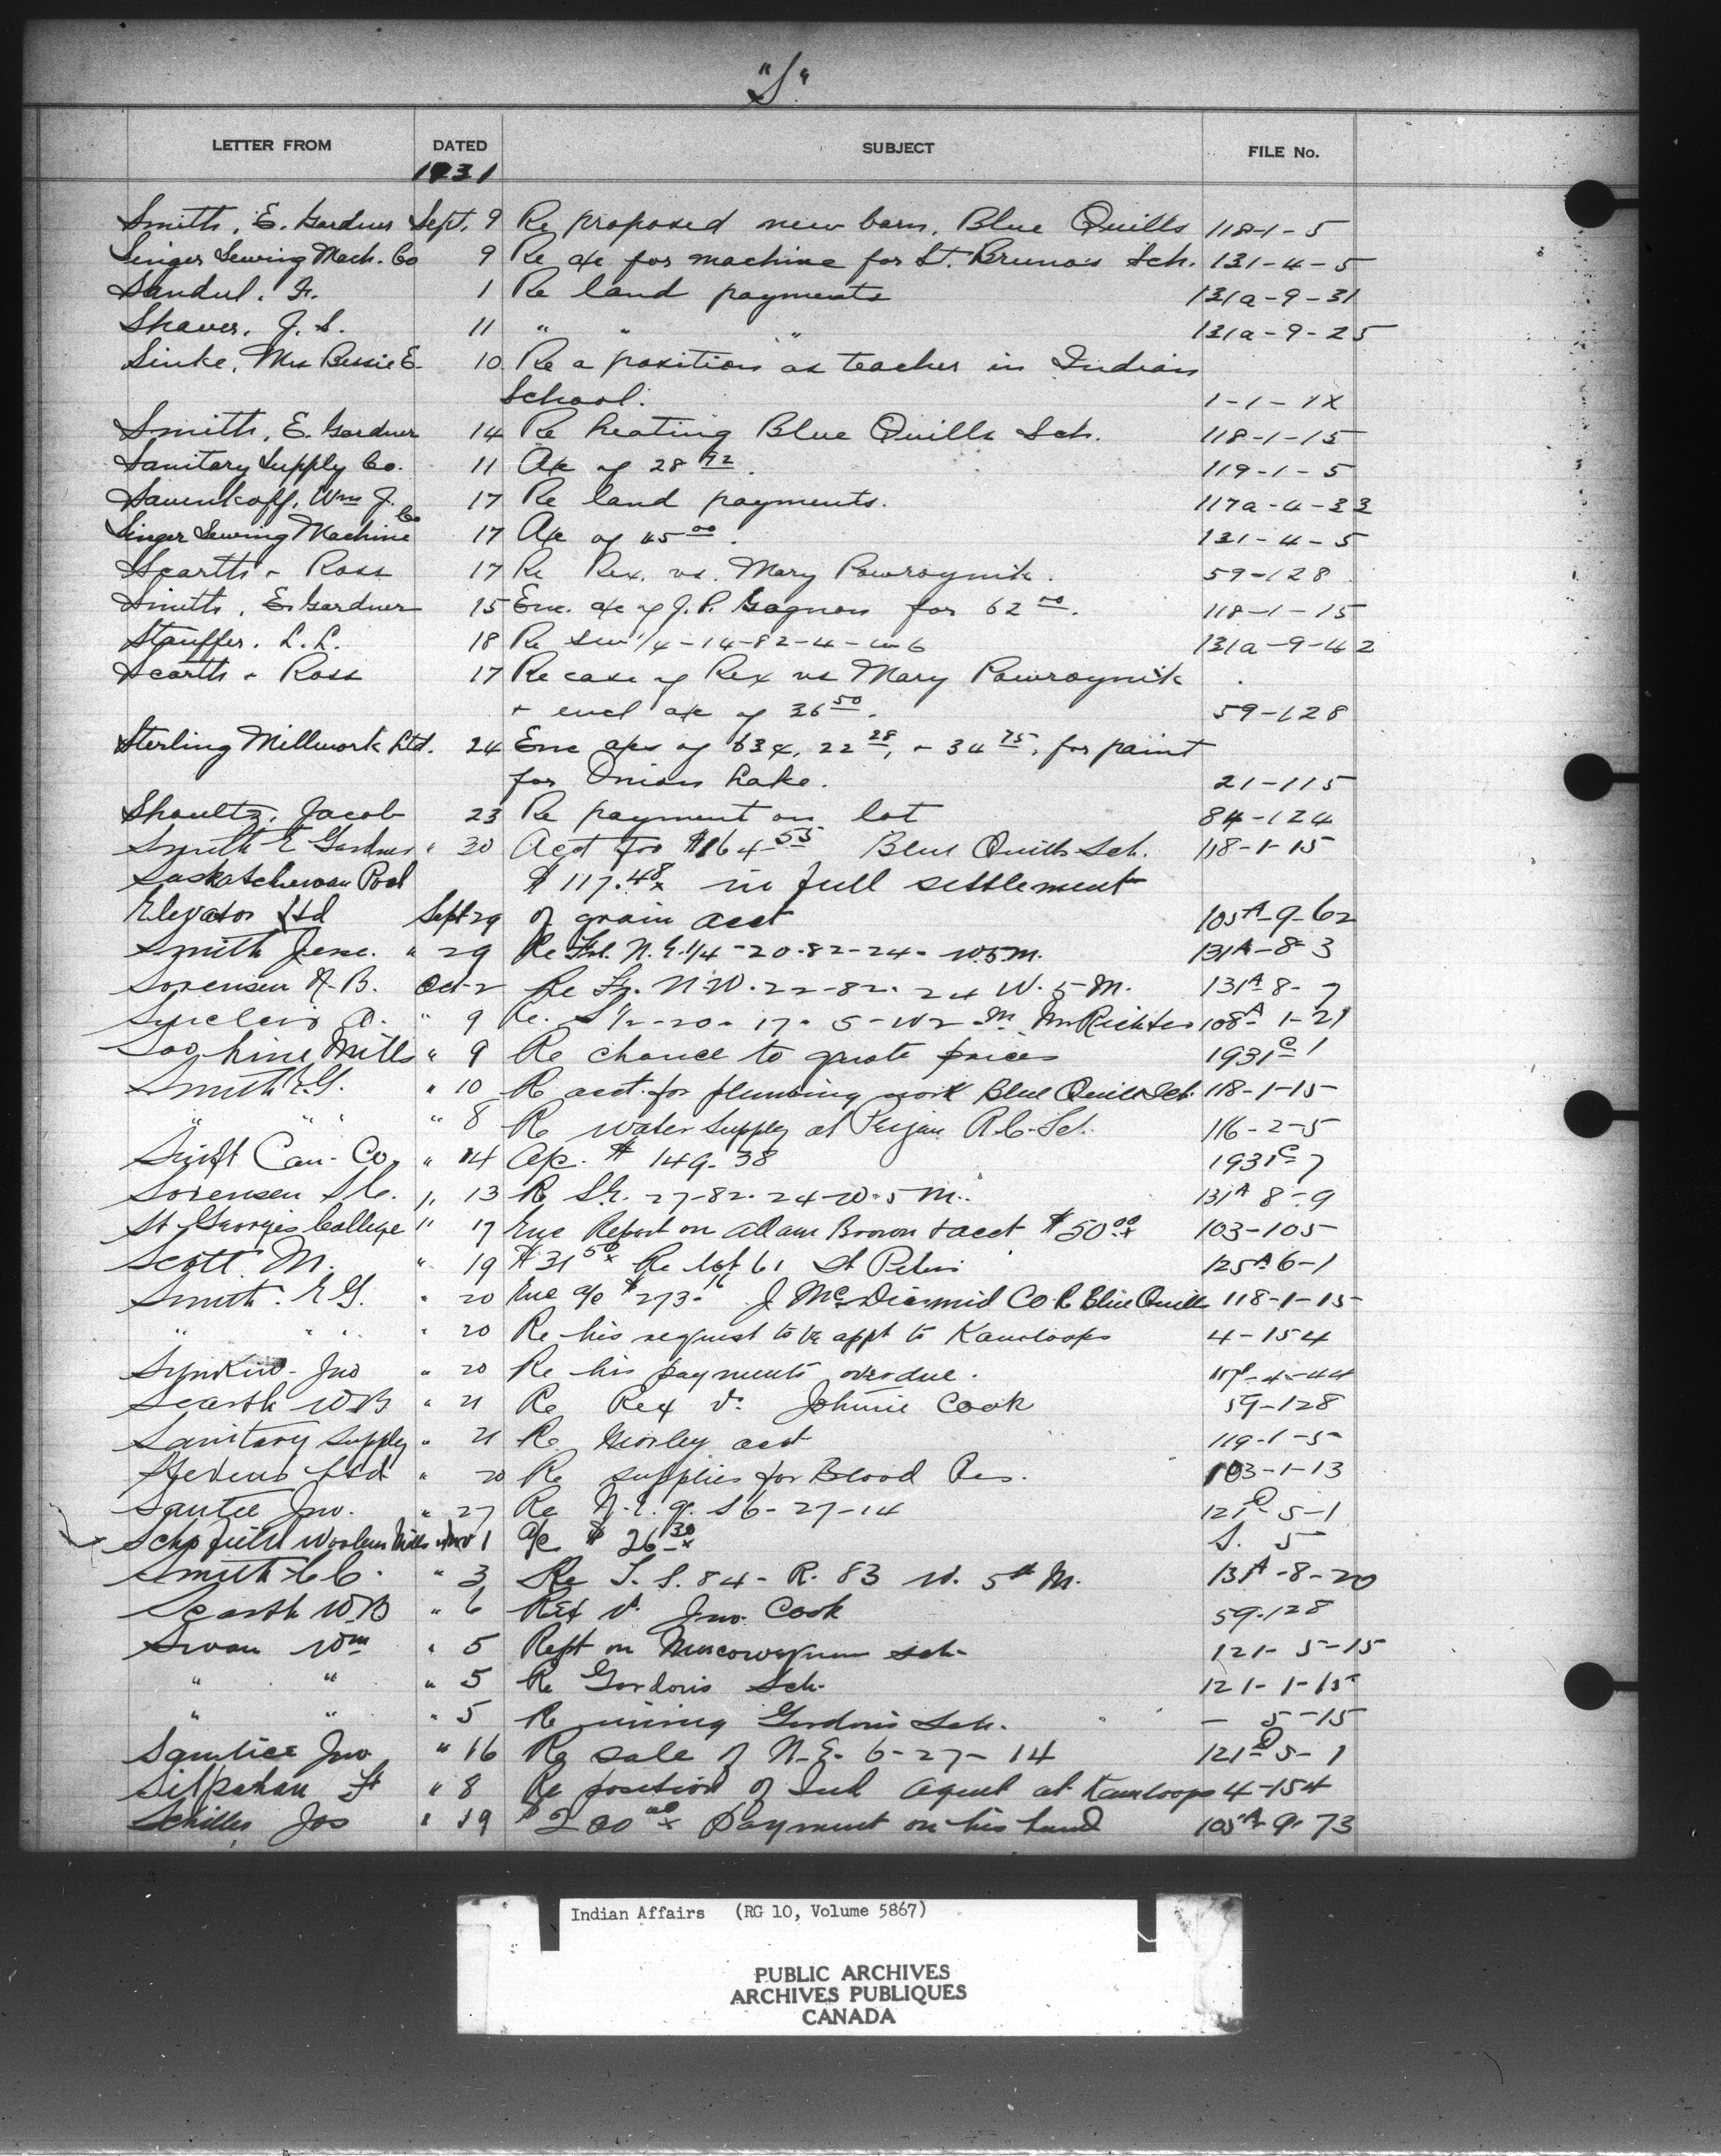 "S"
LETTER FROM DATED SUBJECT FILE No.
1931
Smith, E. Gardner Sept. 9 Re proposed new barn, Blue Quills 118-1-5
Singer Sewing Mach. Co 9 Re a/c for machine for St. Bruno's Sch. 131-4-5
Sandul, F. 1 Re land payments 131a-9-31
Shaver, J. S. 11 " " " 131a-9-25
Sinke, Mrs Bessie E. 10 Re a position as teacher in Indian
School. 1-1-1X
Smith, E. Gardner 14 Re heating Blue Quills Sch. 118-1-15
Sanitary Supply Co. 11 A/c of 28 72. 119-1-5
Savenkoff, Wm J. 17 Re land payments. 117a-4-33
Singer Sewing Machine Co 17 A/c of 45 00. 131-4-5
Scarth & Ross 17 Re Rex. vs. Mary Powroynik. 59-128
Smith, E. Gardner 15 Enc. a/c of J. P. Gagnon for 62 50. 118-1-15
Stauffer, L. L. 18 Re sw 1/4-14-82-4-w6 131a-9-42
Scarth & Ross 17 Re case of Rex vs Mary Powroynik
& encl a/c of 36 50. 59-128
Sterling Millwork Ltd. 24 Enc a/cs of 63¢, 22 28, & 34 75, for paint
for Onion Lake. 21-115
Shoultz, Jacob 23 Re payment on lot 84-124
Smith E Gardner " 30 Acct for $164 55 Blue Quills Sch. 118-1-15
Saskatchewan Pool $117.48 in full settlement
Elevator Ltd Sept 29 of grain acct 105A-9-62
Smith Jesse. " 29 Re Frl. N.E.1/4-20-82-24-W.5M. 131A-8-3
Sorensen A.B. Oct-2 Re Fr. N-W-22-82-24 W. 5-M. 131A 8-7
Sinclair O. " 9 Re. S1/2-20-17-5-W2-M Mr Richter 108A 1-21
Soo Line Mills " 9 Re chance to quote prices 1931C-1
Smith E.G. " 10 Re acct. for plumbing work Blue Quills Sch. 118-1-15
" " " 8 Re water supply at Peigan R.C. Sch. 116-2-5
Swift Can. Co. " 14 A/c. $149.38 1931C-7
Sorensen S.C. " 13 Re S1/2. 27-82-24-W-5 M. 131A 8-9
St George's College " 17 Enc Report on Adam Brown & acct $50 00 103-105
Scott M. " 19 $31 50 Re lot 61 St Peters 125A 6-1
Smith. E.G. " 20 Enc a/c $273.16 J McDiarmid Co. R Blue Quills 118-1-15
" " " " 20 Re his request to be appt to Kamloops 4-154
Jno " 20 Re his payments overdue. 117A-4-44
Scarth W.B " 21 Re Rex v. Johnnie Cook 59-128
Sanitary Supply " 21 Re Morley acct 119-1-5
Stevens Ltd " 20 Re supplies for Blood Res. 103-1-13
Santee Jno. " 27 Re N.E. qr. S6-27-14 121C-5-1
Schofield Woolen Mills Nov 1 a/c $26 30 S. 5
Smith C.C. " 3 Re T.S. 84-R. 83 W. 5th M. 131A-8-20
Scarth W.B " 6 Rex v. Jno. Cook 59-128
Swan Wm " 5 Rept on Muscowequan sch. 121-5-15
" " " 5 Re Gordon's Sch. 121-1-15
" " " 5 Re wiring Gordon's Sch. - 5-15
Santiee Jno. " 16 Re sale of N.E. 6-27-14 121-5-1
" 8 Re position of Ind Agent at Kamloops 4-154
Schiller Jos " 19 $200 00 payment on his land 105A-9-73
Indian Affairs (RG 10, Volume 5867)
PUBLIC ARCHIVES
ARCHIVES PUBLIQUES
CANADA